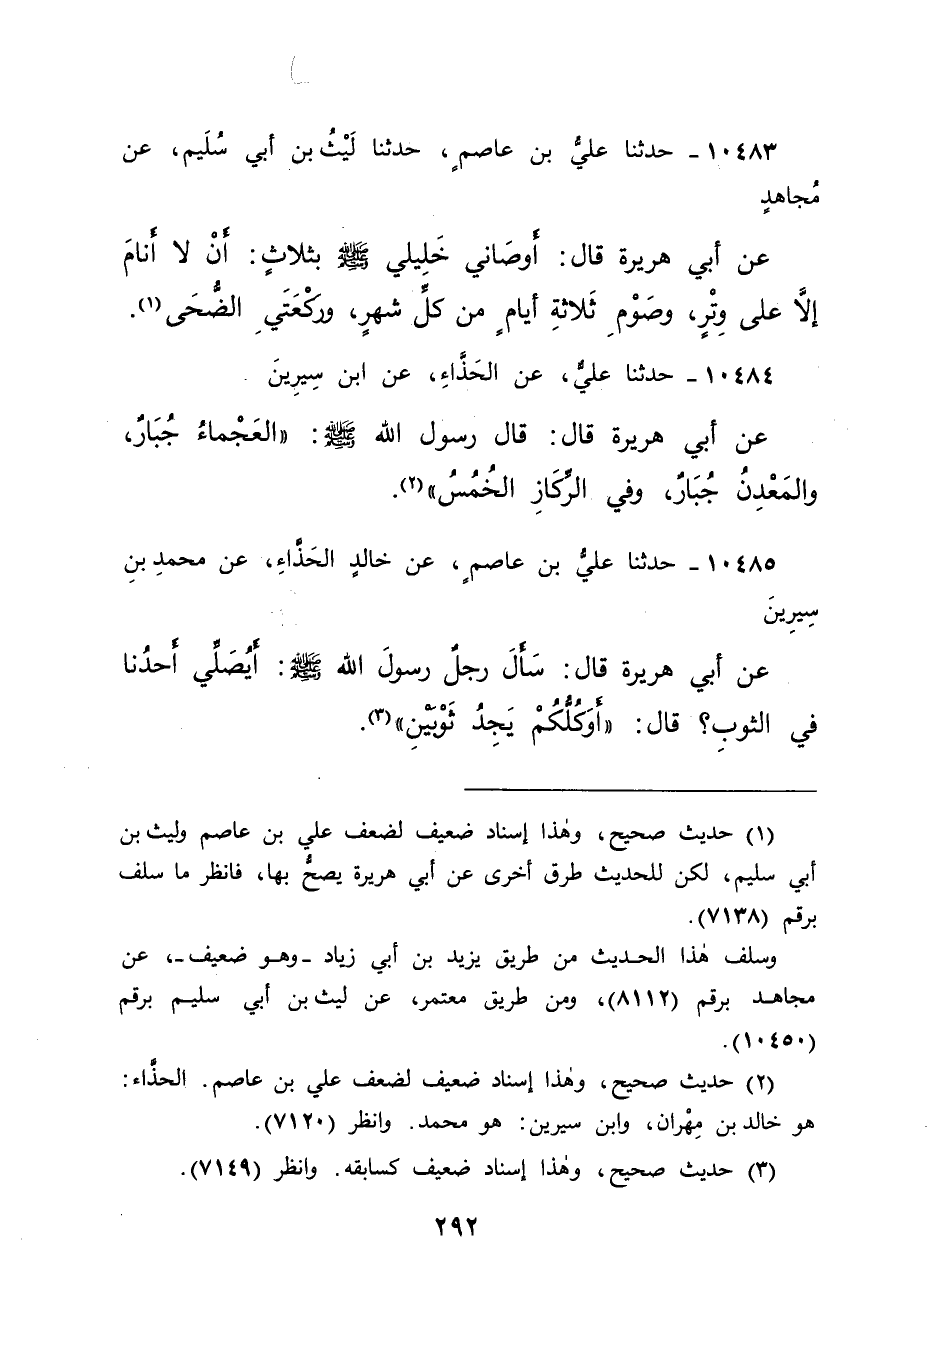 ١٠٤٨٣ - حدثنا عليُّ بن عاصمٍ، حدثنا لَيْثُ بن أبي سُلَيم، عن
مُجاهدٍ
عن أبي هريرة قال: أَوصَاني خَلِيلي ﷺ بثلاثٍ: أَنْ لا أَنامَ
إلَّا على وِتْرٍ، وصَوْمِ ثَلاثةِ أيامٍ من كلِّ شهرٍ، وركْعَتَيِ الضُّحَى(١).
١٠٤٨٤ - حدثنا عليٌّ، عن الحَذَّاءِ، عن ابن سِيرِينَ
عن أبي هريرة قال: قال رسول الله ﷺ: «العَجْماءُ جُبَارٌ،
والمَعْدِنُ جُبَارٌ، وفي الرِّكَازِ الخُمُسُ»(٢).
١٠٤٨٥ - حدثنا عليُّ بن عاصمٍ، عن خالدٍ الحَذَّاءِ، عن محمدِ بنِ
سِيرِينَ
عن أبي هريرة قال: سَأَلَ رجلٌ رسولَ الله ﷺ: أَيُصَلِّي أَحدُنا
في الثوبِ؟ قال: «أَوَكُلُّكُمْ يَجِدُ ثَوْبَيْنِ»(٣).
(١) حديث صحيح، وهٰذا إسناد ضعيف لضعف علي بن عاصم وليث بن
أبي سليم، لكن للحديث طرق أخرى عن أبي هريرة يصحُّ بها، فانظر ما سلف
برقم (٧١٣٨).
وسلف هٰذا الحديث من طريق يزيد بن أبي زياد -وهو ضعيف-، عن
مجاهد برقم (٨١١٢)، ومن طريق معتمر، عن ليث بن أبي سليم برقم
(١٠٤٥٠).
(٢) حديث صحيح، وهٰذا إسناد ضعيف لضعف علي بن عاصم. الحذَّاء:
هو خالد بن مِهْران، وابن سيرين: هو محمد. وانظر (٧١٢٠).
(٣) حديث صحيح، وهٰذا إسناد ضعيف كسابقه. وانظر (٧١٤٩).
٢٩٢